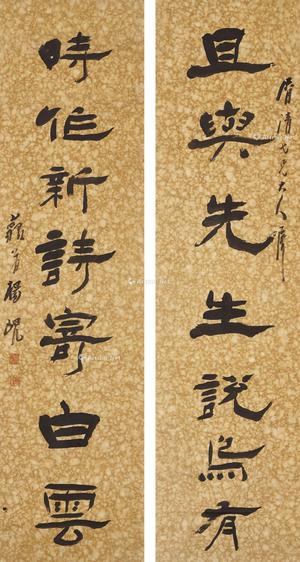 且與先生說烏有
清 兄大人
時作新詩寄白雲
藐翁楊峴